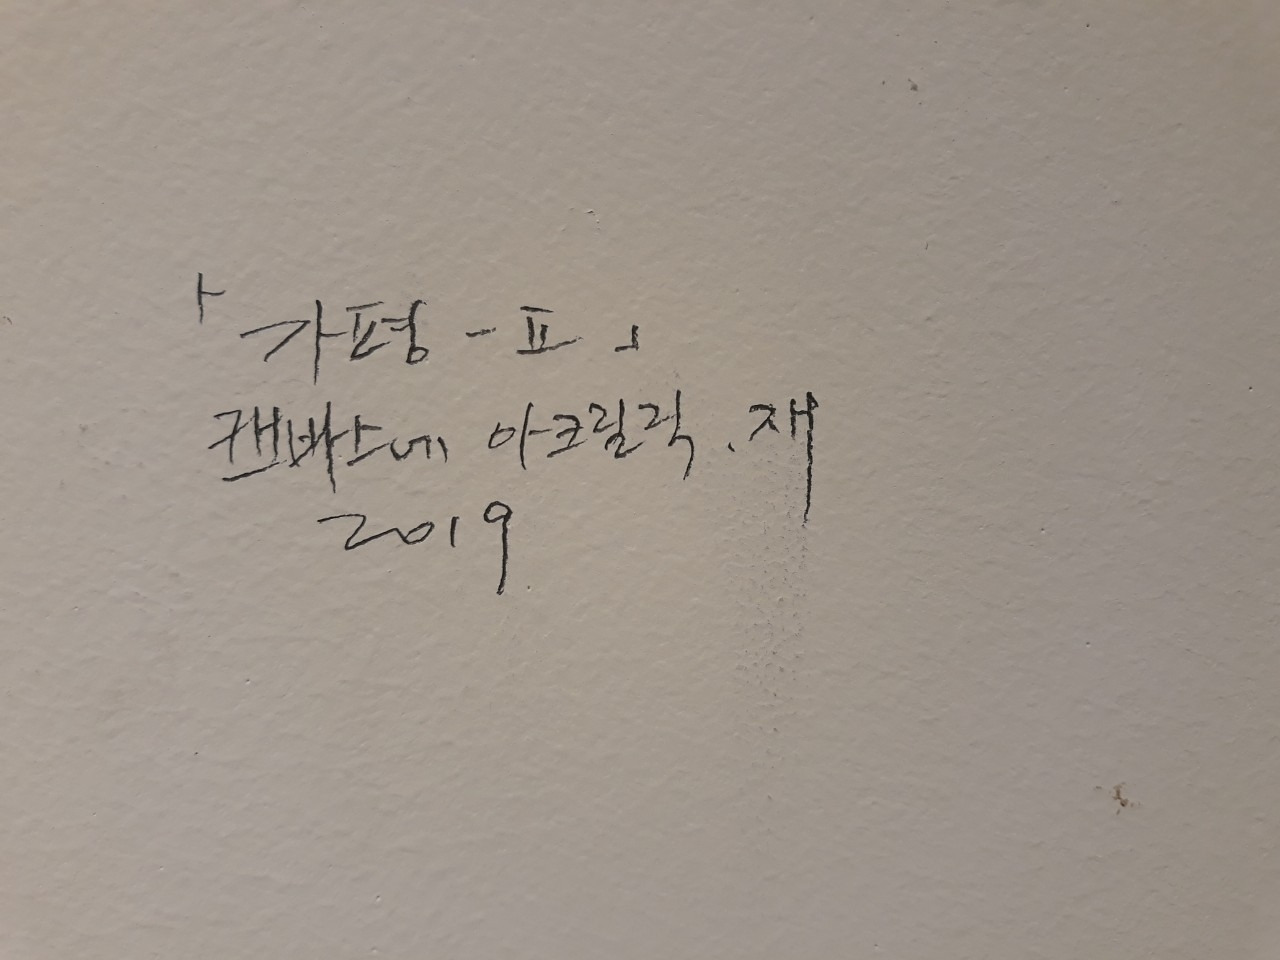 「가평 - Ⅱ」
캔바스에 아크릴릭. 재
2019